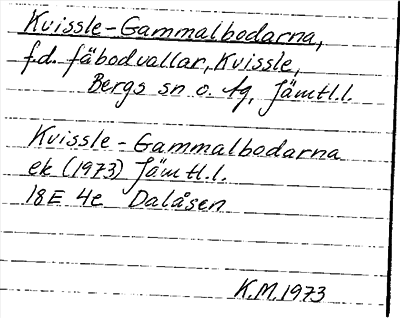 Kvissle-Gammalbodarna,
f.d. fäbodvallar, Kvissle,
Bergs sn o. tg, Jämtl.l.
Kvissle-Gammalbodarna
ek (1973) Jämtl.l.
18E 4e Dalåsen
K.M. 1973